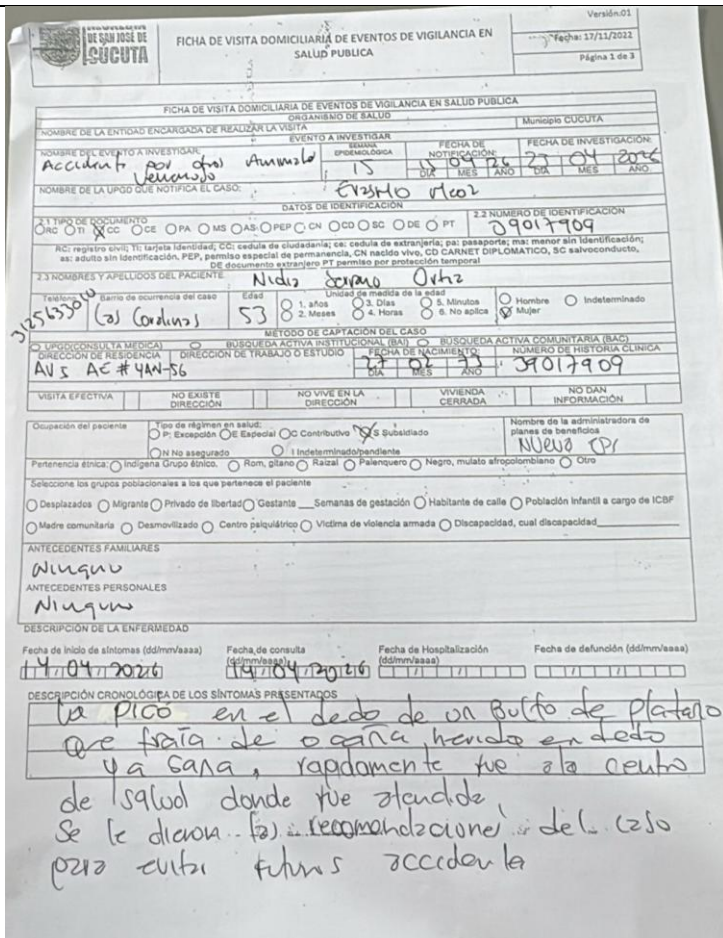 DE SAN JOSÉ DE
CÚCUTA
FICHA DE VISITA DOMICILIARIA DE EVENTOS DE VIGILANCIA EN SALUD PUBLICA
Versión.01
Fecha: 17/11/2022
Página 1 de 3
FICHA DE VISITA DOMICILIARIA DE EVENTOS DE VIGILANCIA EN SALUD PUBLICA
ORGANISMO DE SALUD
NOMBRE DE LA ENTIDAD ENCARGADA DE REALIZAR LA VISITA Municipio CUCUTA
EVENTO A INVESTIGAR
NOMBRE DEL EVENTO A INVESTIGAR: SEMANA EPIDEMIOLÓGICA FECHA DE NOTIFICACIÓN: FECHA DE INVESTIGACIÓN:
Accidente por otros Animales Venenoso 15 15 04 26 23 04 2026
DIA MES AÑO DIA MES AÑO
NOMBRE DE LA UPGD QUE NOTIFICA EL CASO: Erasmo Meoz
DATOS DE IDENTIFICACIÓN
2.1 TIPO DE DOCUMENTO 2.2 NÚMERO DE IDENTIFICACIÓN
RC TI CC CE PA MS AS PEP CN CD SC DE PT 39017909
RC: registro civil; TI: tarjeta identidad; CC: cedula de ciudadania; ce: cedula de extranjería; pa: pasaporte; ma: menor sin identificación;
as: adulto sin identificación, PEP, permiso especial de permanencia, CN nacido vivo, CD CARNET DIPLOMATICO, SC salvoconducto,
DE documento extranjero PT permiso por protección temporal
2.3 NOMBRES Y APELLIDOS DEL PACIENTE Nidia Serrano Ortiz
Teléfono Barrio de ocurrencia del caso Edad Unidad de medida de la edad
Las Coralinas 53 1. años 3. Días 5. Minutos Hombre Indeterminado
2. Meses 4. Horas 6. No aplica Mujer
METODO DE CAPTACIÓN DEL CASO
UPGD(CONSULTA MEDICA) BUSQUEDA ACTIVA INSTITUCIONAL (BAI) BUSQUEDA ACTIVA COMUNITARIA (BAC)
DIRECCIÓN DE RESIDENCIA DIRECCIÓN DE TRABAJO O ESTUDIO FECHA DE NACIMIENTO: NÚMERO DE HISTORIA CLINICA
AV 5 AE # 4AN-56 27 02 73 39017909
DIA MES AÑO
VISITA EFECTIVA NO EXISTE DIRECCIÓN NO VIVE EN LA DIRECCIÓN VIVIENDA CERRADA NO DAN INFORMACIÓN
Ocupación del paciente Tipo de régimen en salud: Nombre de la administradora de planes de beneficios
P: Excepción E Especial C Contributivo S Subsidiado Nueva EPS
N No asegurado I Indeterminado/pendiente
Pertenencia étnica: Indígena Grupo étnico. Rom, gitano Raizal Palenquero Negro, mulato afrocolombiano Otro
Seleccione los grupos poblacionales a los que pertenece el paciente
Desplazados Migrante Privado de libertad Gestante ___Semanas de gestación Habitante de calle Población infantil a cargo de ICBF
Madre comunitaria Desmovilizado Centro psiquiátrico Victima de violencia armada Discapacidad, cual discapacidad
ANTECEDENTES FAMILIARES
Ninguno
ANTECEDENTES PERSONALES
Ninguno
DESCRIPCIÓN DE LA ENFERMEDAD
Fecha de inicio de síntomas (dd/mm/aaaa) Fecha de consulta (dd/mm/aaaa) Fecha de Hospitalización (dd/mm/aaaa) Fecha de defunción (dd/mm/aaaa)
14/04/2026 14/04/2026
DESCRIPCIÓN CRONOLÓGICA DE LOS SÍNTOMAS PRESENTADOS
la picó en el dedo de un Bulto de platano
que traia de ocaña herida en dedo
ya sana, rapidamente fue a la centro
de salud donde fue atendida,
Se le dieron las recomendaciones del caso
para evitar futuros accidente